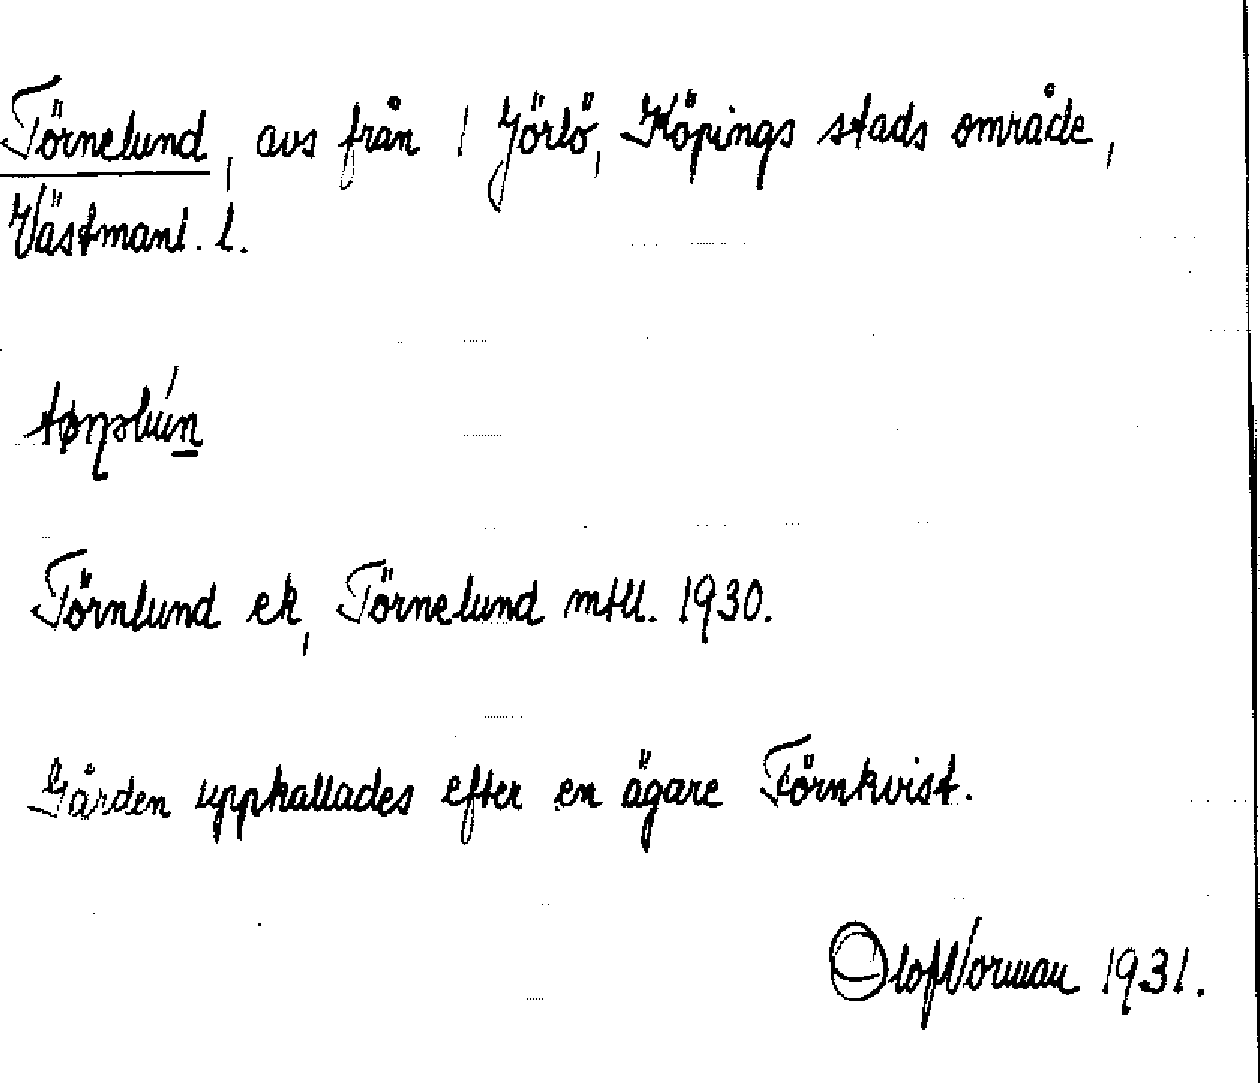 Törnelund, avs från 1 Jörlö, Köpings stads område,
Västmanl. l.
Törnlund ek, Törnelund mtll. 1930.
Gården uppkallades efter en ägare Törnkvist.
Olof Norman 1931.